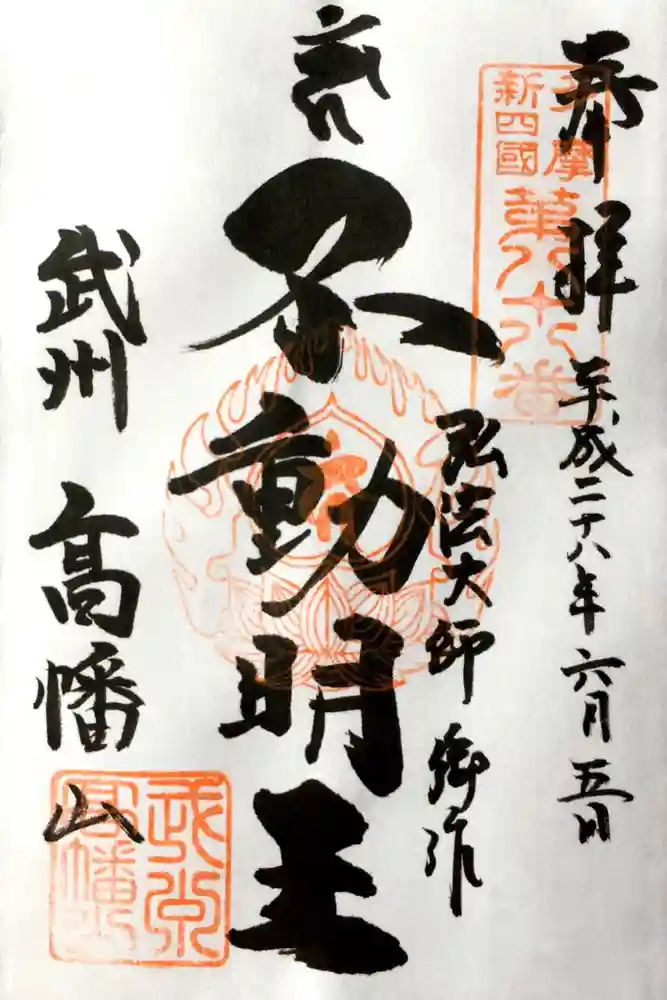 奉拝 平成二十八年六月五日
多摩
新四國
第八十八番
弘法大師 御作
不動明王
武州 高幡山
高幡山